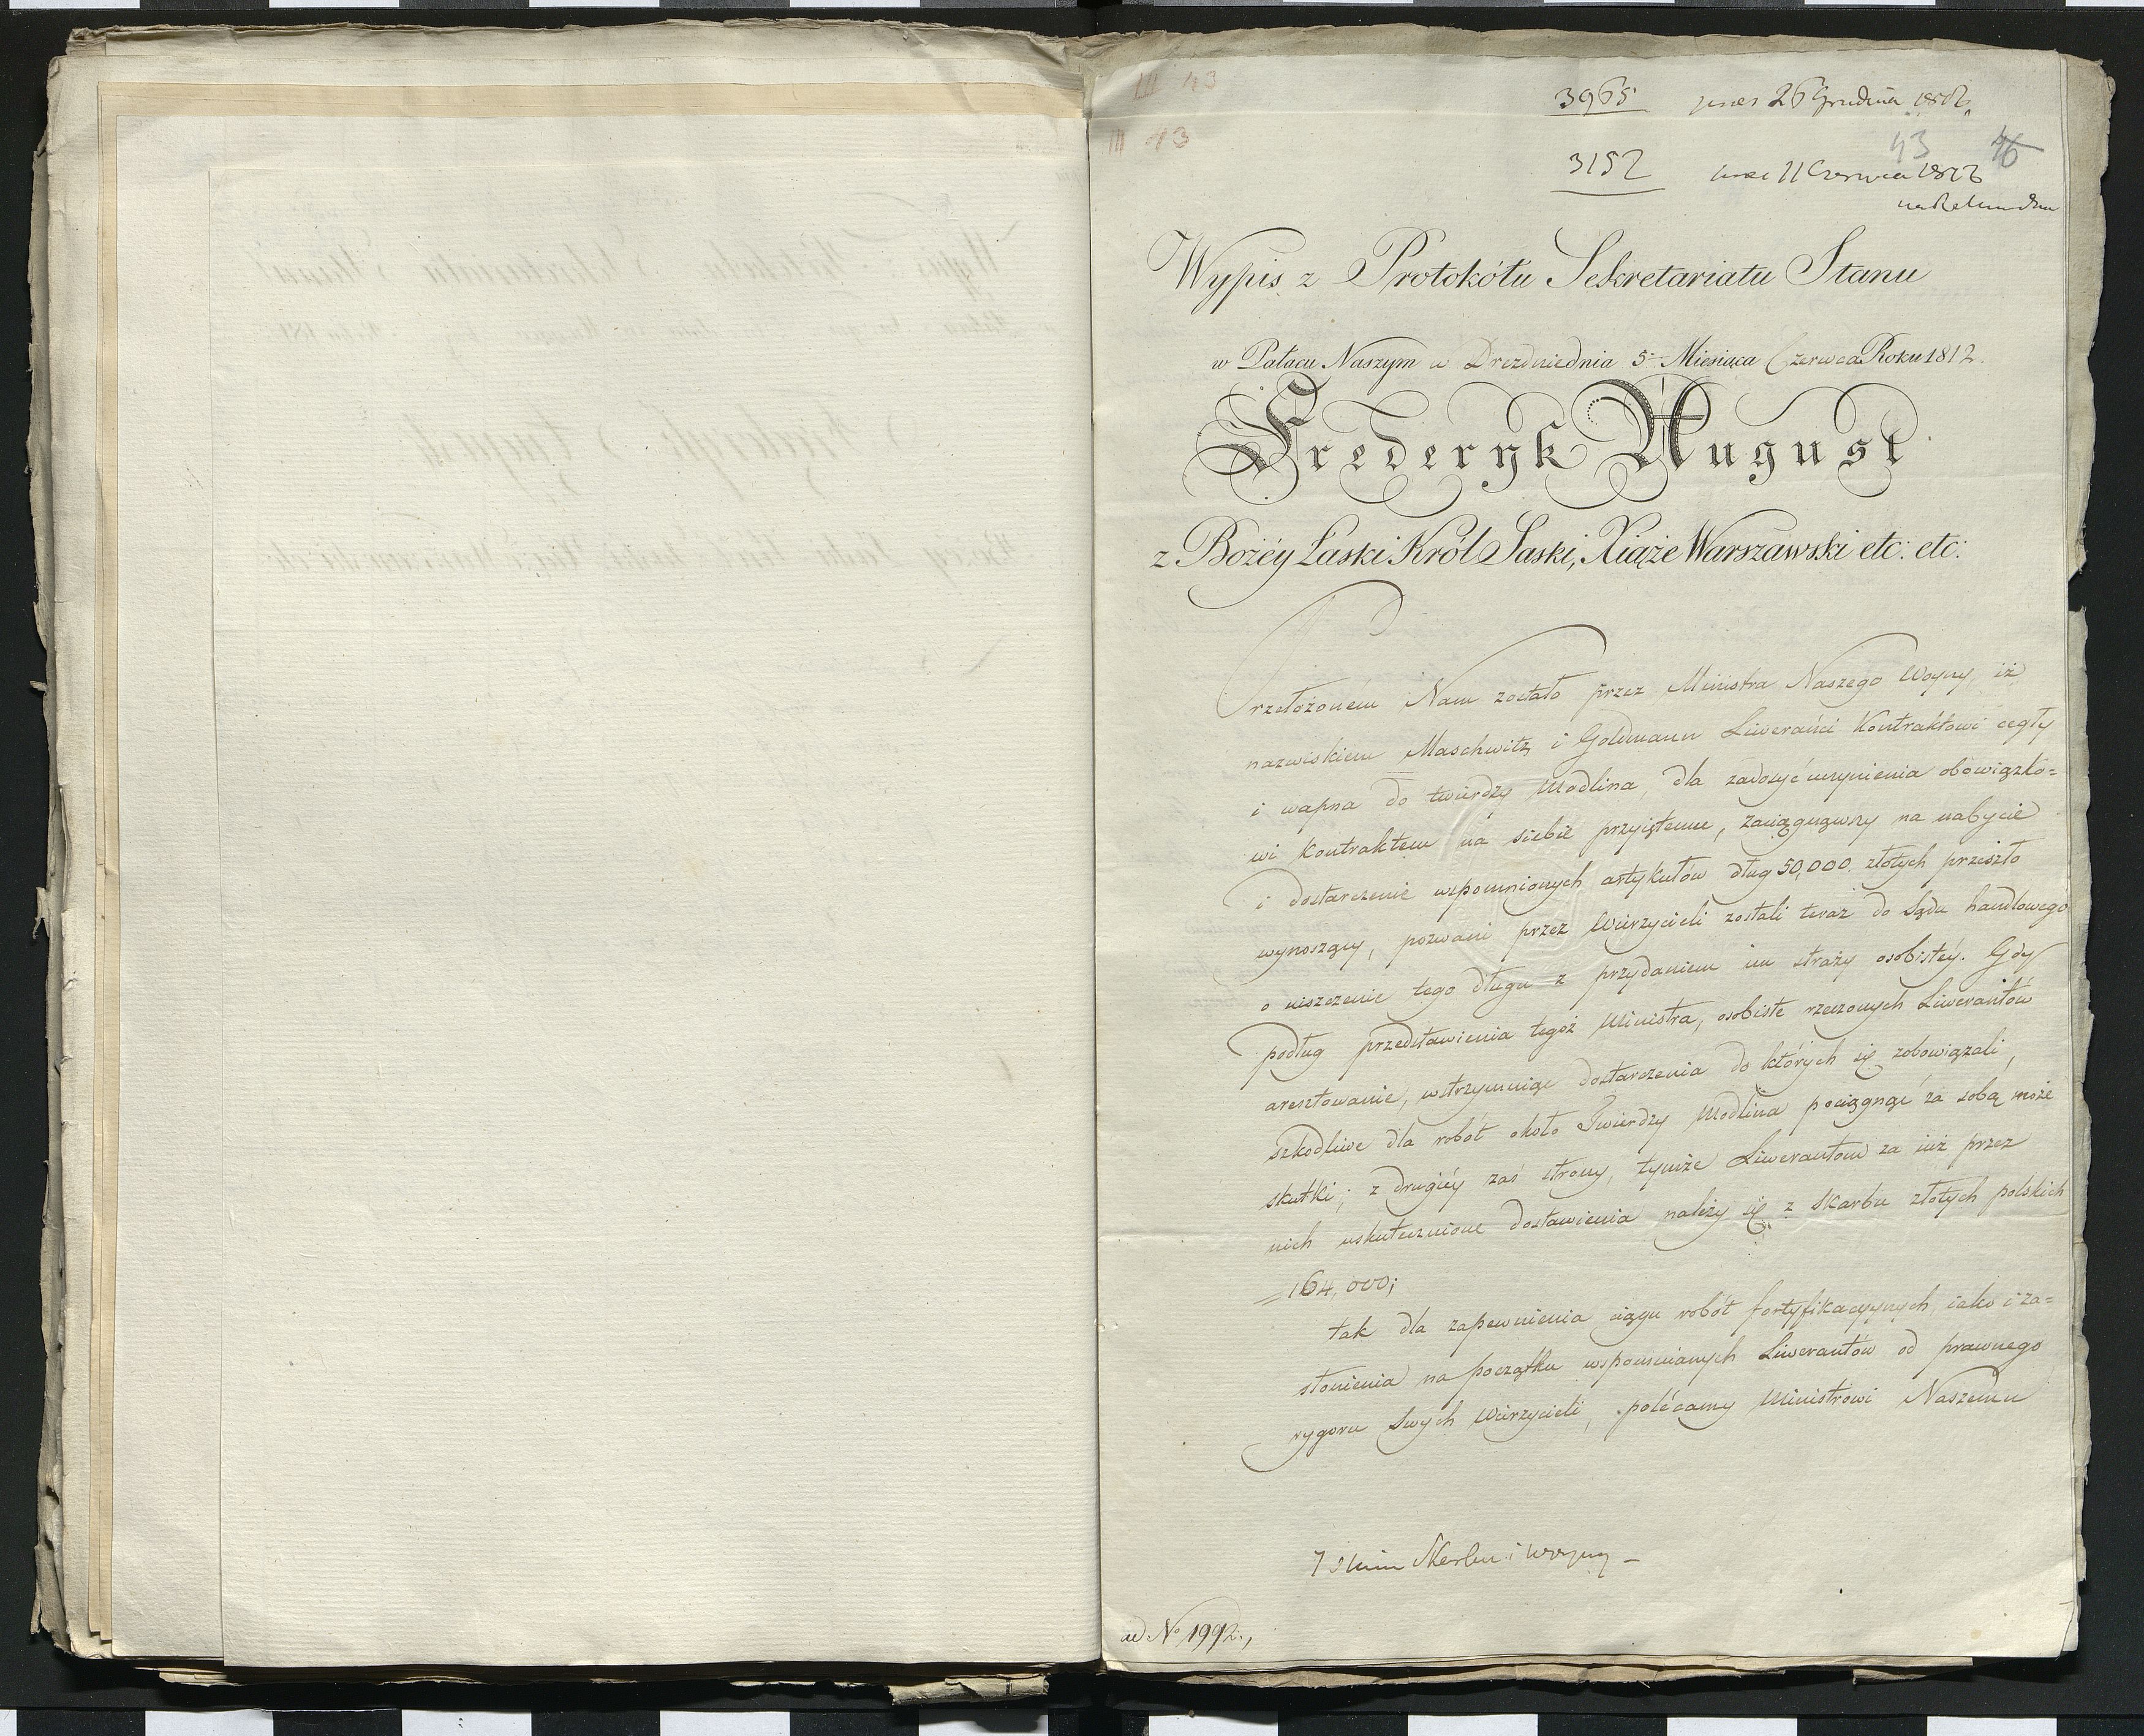 III 43
III 43
3965 26 Grudnia
43 46
3152 11 Czerwca
Wypis z Protokółu Sekretariatu Stanu
w Pałacu Naszym w Dreznie dnia 5. Miesiąca Czerwca Roku 1812.
Frederyk August
z Bożéy Łaski Król Saski, Xiąże Warszawski etc: etc:
Przełożonem Nam zostało przez Ministra Naszego Woyny, iż
nazwiskiem Maschwitz i Goldmann Liweranći Kontraktowi cegły
i wapna do twierdzy Modlina, dla zadosyć uczynienia obowiązko=
wi kontraktem na siebie przyiętemu, zaciągnąwszy na nabycie
i dostarczenie wspomnionych artykułów dług 50,000. złotych przeszło
wynoszący, pozwani przez Wierzycieli zostali teraz do Sądu handlowego
o uiszczenie tego długu z przydaniem im straży osobistéy. Gdy
podług przedstawienia tegoż Ministra, osobiste rzeczonych Liwerantów
aresztowanie, wstrzymuiąc dostarczenia do których się zobowiązali,
szkodliwe dla robót około Twierdzy Modlina pociągnąć za sobą może
skutki; z drugiéy zaś strony, tymże Liwerantom za iuż przez
nich uskutecznione dostawienia należy się z Skarbu złotych polskich
=164,000;
tak dla zapewnienia ciągu robót fortyfikacyynych, iako i za=
słonienia na początku wspomnianych Liwerantów od prawnego
rygoru Swych Wierzycieli, polécamy Ministrowi Naszemu
Skarbu i Woyny –
ad No 1992.,